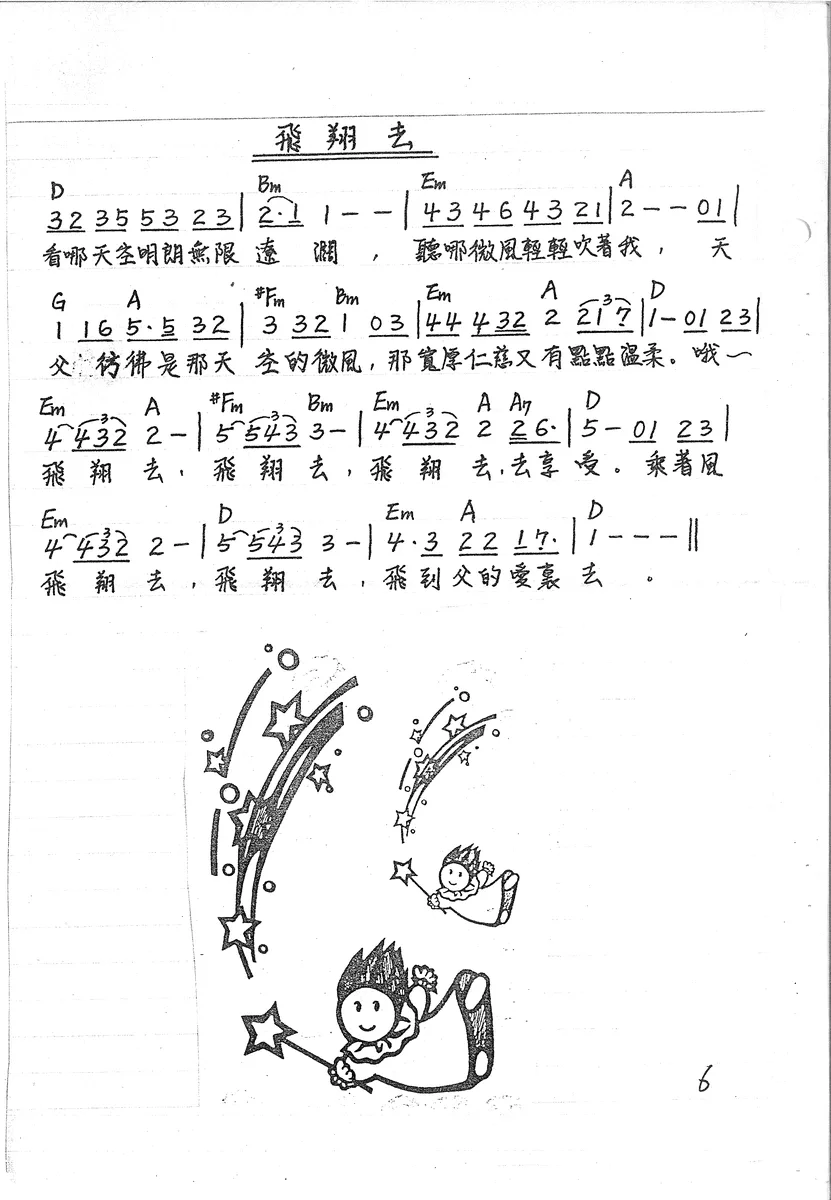 飛翔去
D Bm Em A
32 35 53 23 | 2·1 1 - - | 43 46 43 21 | 2 - - 01 |
看哪天空明朗無限遼濶，聽哪微風輕輕吹著我，天
G A #Fm Bm Em A D
1 16 5·5 32 | 3 32 1 03 | 44 432 2 217 | 1 - 01 23 |
父彷彿是那天空的微風，那寬厚仁慈又有點點溫柔。哦～
Em A #Fm Bm Em A A7 D
4 432 2 - | 5 543 3 - | 4 432 2 26· | 5 - 01 23 |
飛翔去，飛翔去，飛翔去，去享受。乘著風
Em D Em A D
4 432 2 - | 5 543 3 - | 4·3 22 17· | 1 - - - ||
飛翔去，飛翔去，飛到父的愛裏去。
6